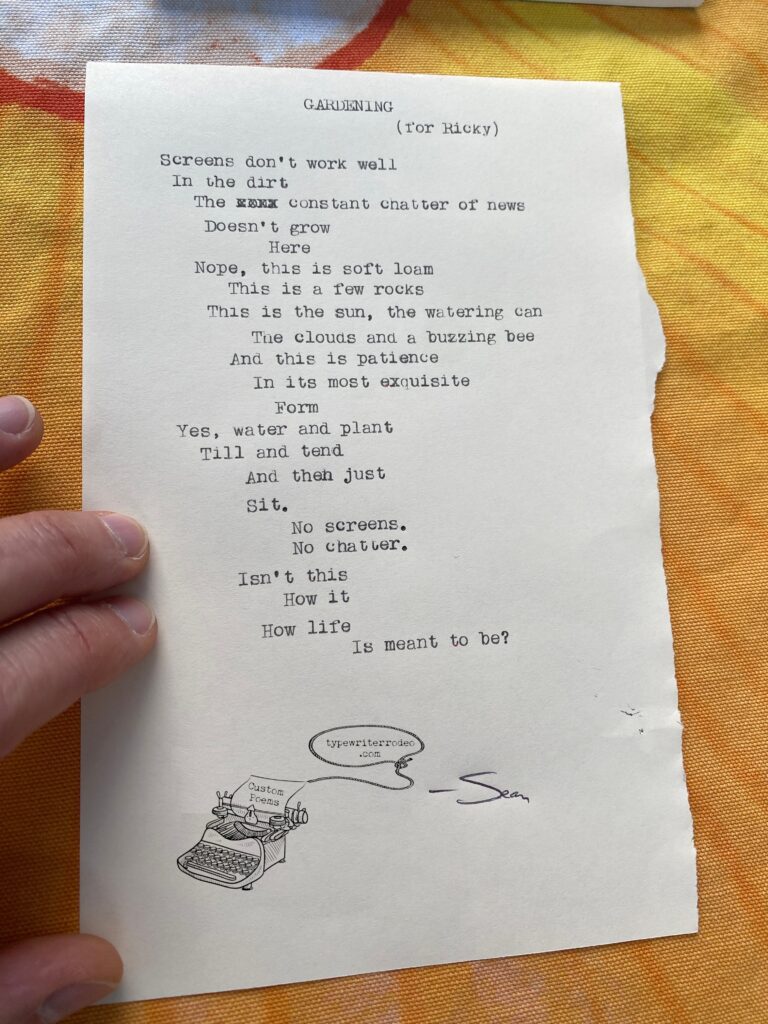 GARDENING
(for Ricky)
Screens don't work well
In the dirt
The xxxx constant chatter of news
Doesn't grow
Here
Nope, this is soft loam
This is a few rocks
This is the sun, the watering can
The clouds and a buzzing bee
And this is patience
In its most exquisite
Form
Yes, water and plant
Till and tend
And then just
Sit.
No screens.
No chatter.
Isn't this
How it
How life
Is meant to be?
typewriterrodeo
.com
Custom
Poems
-Sean